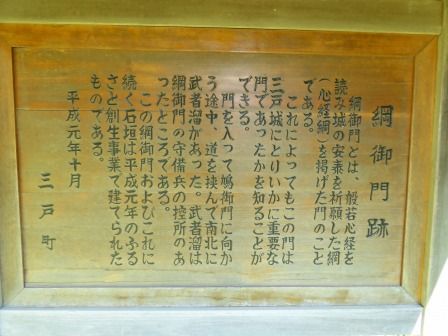 綱御門跡
綱御門とは、般若心経を
読み城の安泰を祈願した綱
(心経綱)を掲げた門のこと
である。
これによってもこの門は
三戸城にとりいかに重要な
門であったかを知ることが
できる。
門を入って鳩御門に向か
う途中、道を挟んで南北に
武者溜があった。武者溜は
綱御門の守備兵の控所のあ
ったところである。
この綱御門およびこれに
続く石垣は平成元年のふる
さと創生事業で建てられた
ものである。
平成元年十月
三戸町